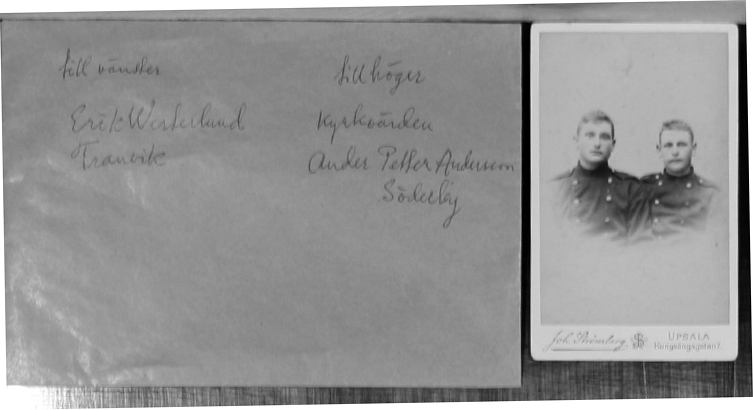 till vänster
Erik Westerlund
Tranvik
till höger
Kyrkvärden
Ander Petter Andersson
Söderby
Joh. Strömberg
UPSALA
Kungsängsgatan 7.